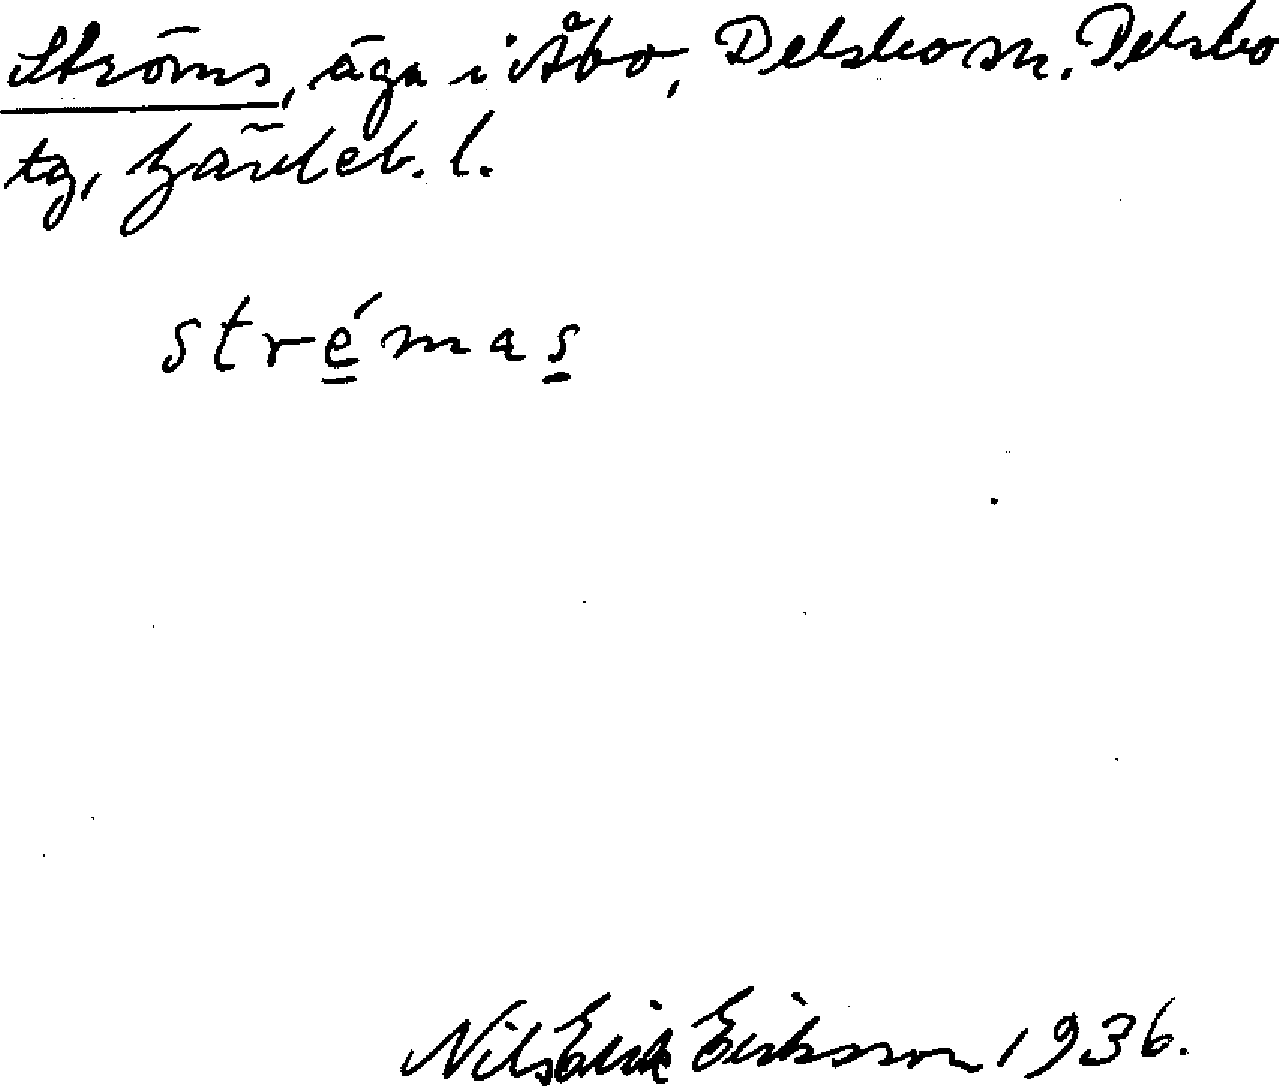 Ströms, äga i Åbo, Delsbo sn. Delsbo
tg, Gävleb. l.
strémas
Nils Erik Eriksson 1936.